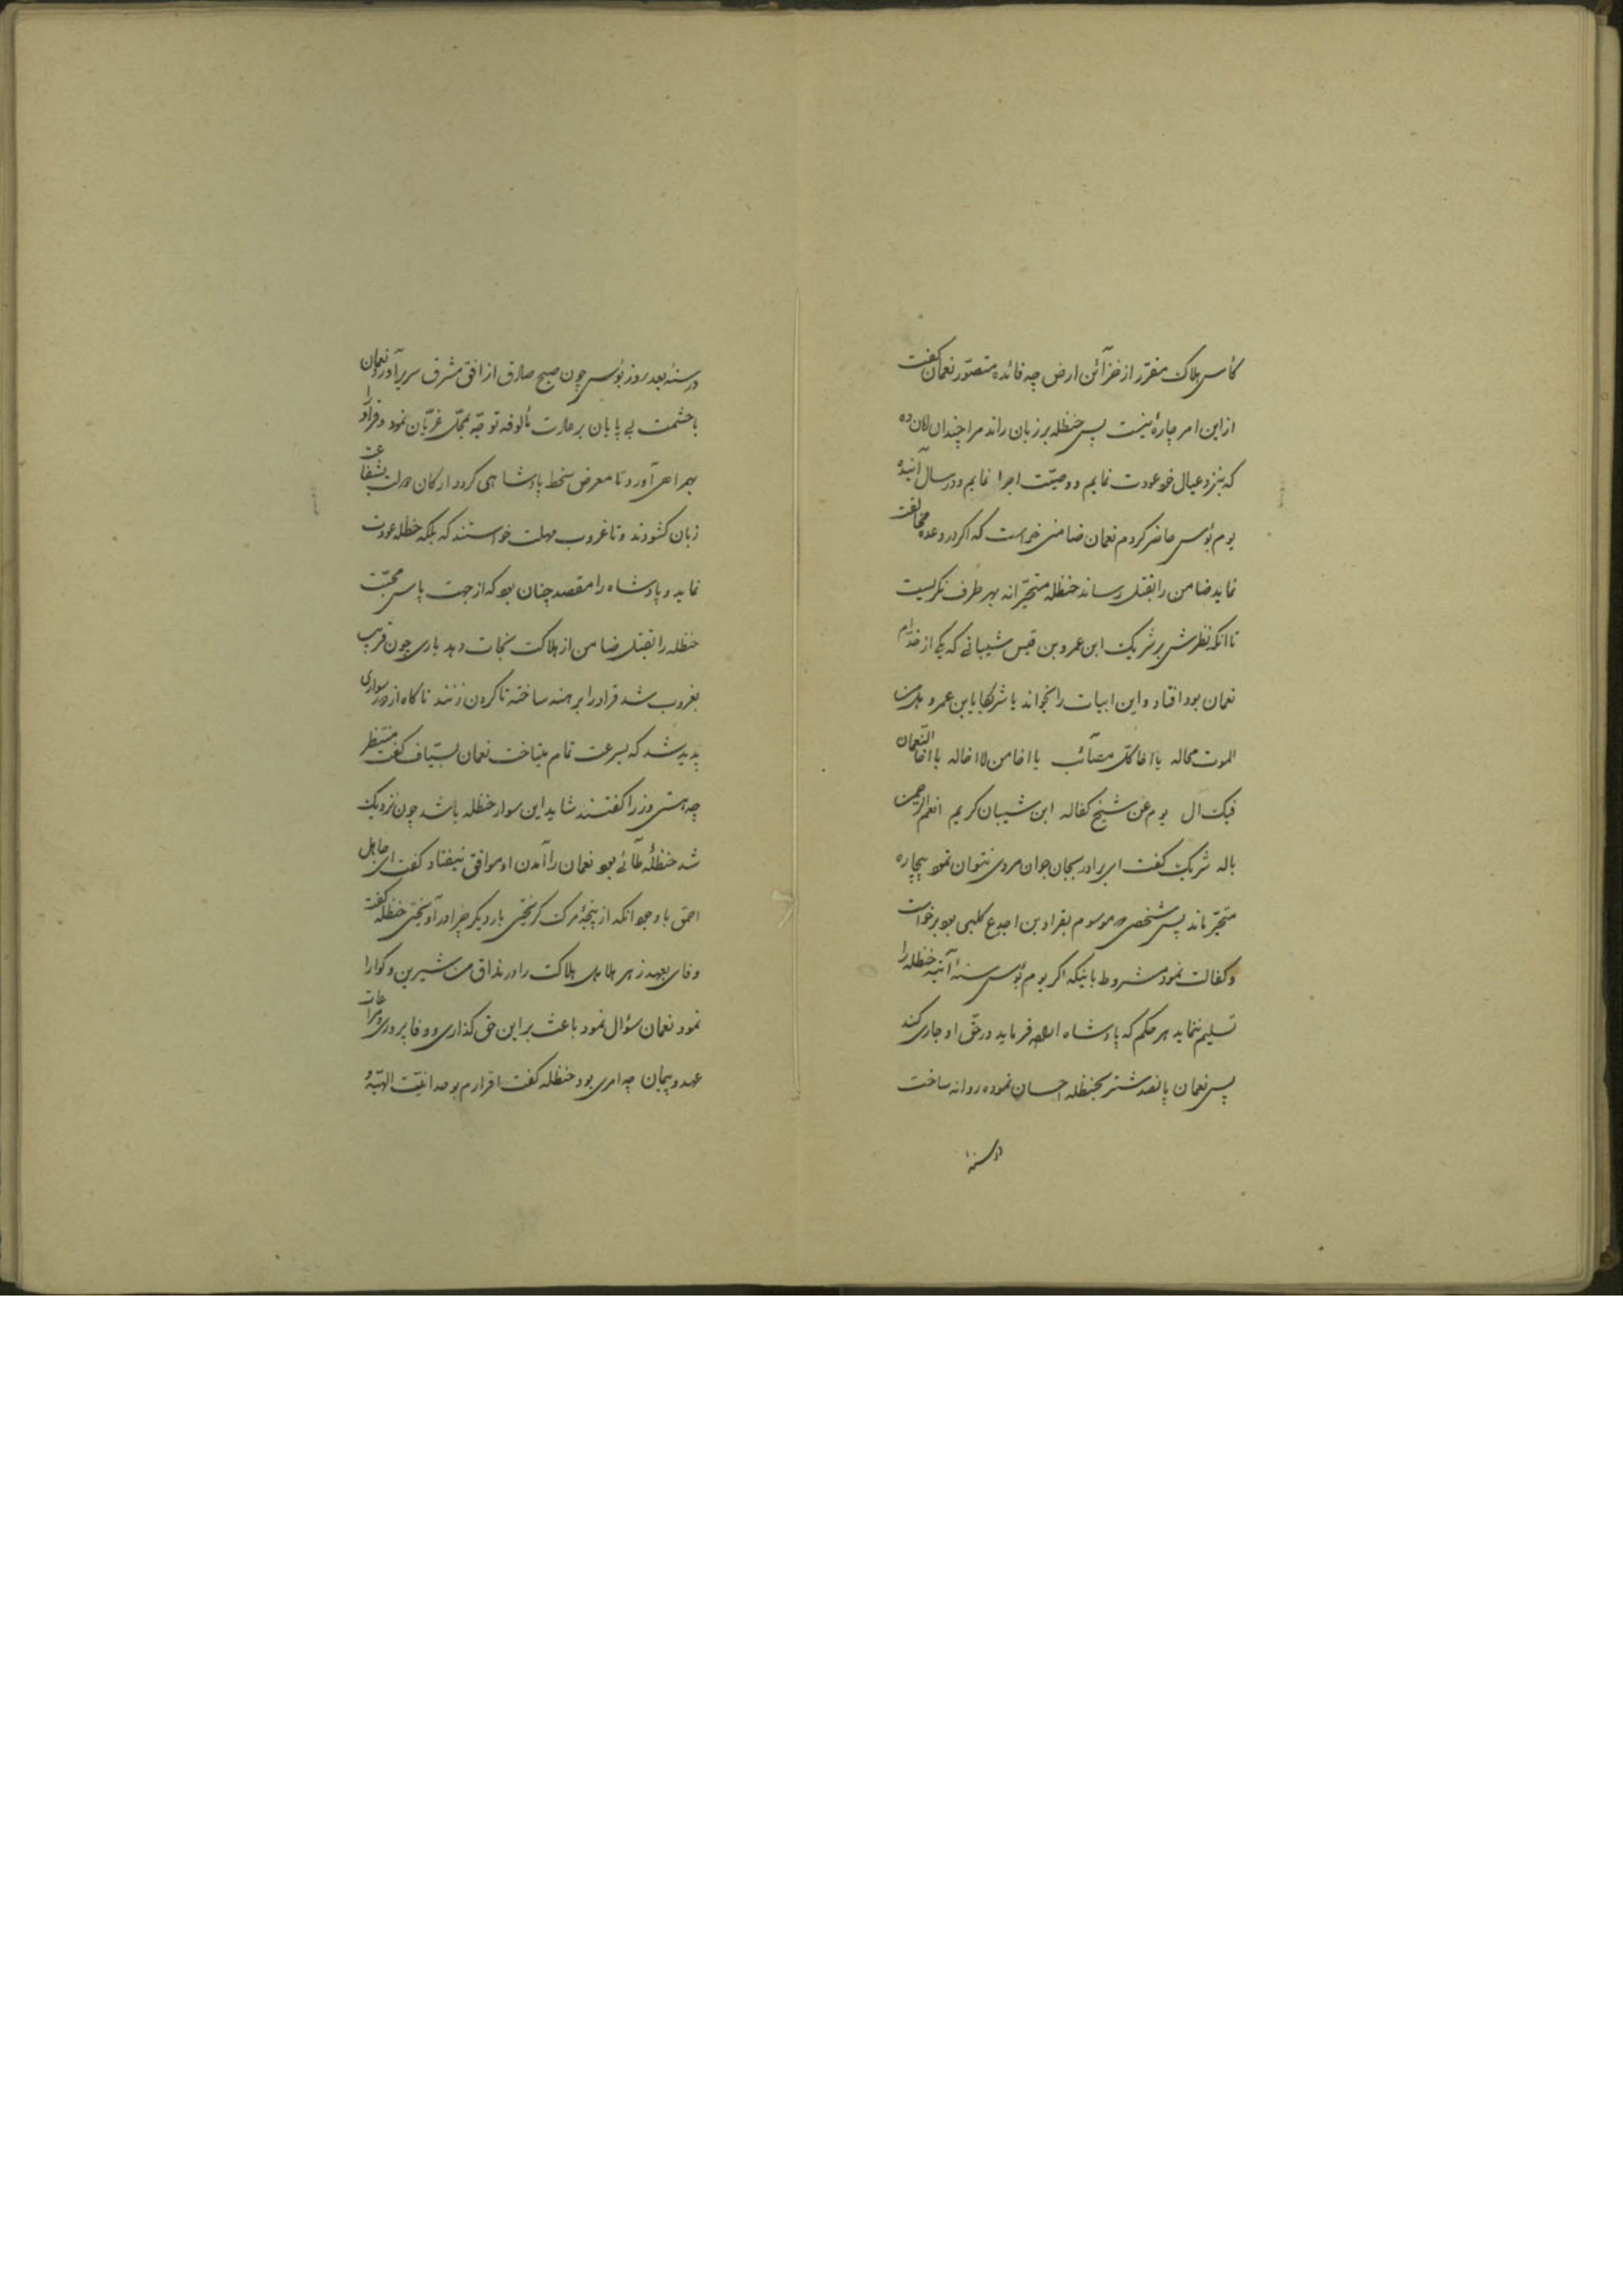 كأس هلاك مقرر از خزآئن ارض چه فائده متصوّر نعمان گفت
از اين امر چارهٔ نيست پس حنظله بر زبان راند مرا چندان امان ده
كه بنزد عيال خود عودت نمايم و وصيّت اجرا نمايم و در سال آتيهٔ
يوم بؤس حاضر كردم نعمان ضامنى خواست كه اگر در وعده مخالفت
نمايد ضامن را بقتل رساند حنظله متحيّرانه بهر طرف نگريست
تا آنكه نظرش بر شريك ابن عمرو بن قيس شيبانى كه يكى از خدّام
نعمان بود افتاد و اين ابيات را بخواند يا شريكا يا بن عمرو هل من
الموت محاله يا اخا كلّ مصآئب يا اخا من لا اخا له يا اخا النّعمان
فيك ال يوم عن شيخ كفاله ابن شيبان كريم انعم الرحمن
باله شريك گفت اى برادر بجان جوان مردى نتوان نمود بيچاره
متحيّر ماند پس شخصى موسوم بقراد بن اجدع كلبى بود برخواست
و كفالت نمود مشروط باينكه اگر يوم بؤس سنهٔ آتيه حنظله را
تسليم ننمايد هر حكم كه پادشاه اراده فرمايد در حقّ او جارى كند
پس نعمان پانصد شتر بحنظله احسان نموده روانه ساخت
در سنهٔ
در سنهٔ بعد روز بؤس چون صبح صادق از افق مشرق سر برآورد نعمان
با حشمت بى پايان بر عادت مألوفه توجّه بمحلّ غريّان نمود و قراد را
بهمراهى آورد تا معرض سخط پادشاهى گردد اركان دولت بشفاعت
زبان گشودند و تا غروب مهلت خواستند كه بلكه حنظله عودت
نمايد و پادشاه را مقصد چنان بود كه از جهت پاس محبّت
حنظله را بقتل ضامن از هلاكت نجات دهد بارى چون قريب
بغروب شد قراد را برهنه ساخته تا گردن زنند ناگاه از دور سوارى
پديد شد كه بسرعت تمام ميتاخت نعمان بسيّاف گفت منتظر
چه هستى وزرا گفتند شايد اين سوار حنظله باشد چون نزديك
شد حنظلهٔ طآئى بود نعمان را آمدن او موافق نيفتاد گفت اى جاهل
احمق با وجود آنكه از پنجهٔ مرگ گريختى بار ديگر چرا در آويختى حنظله گفت
وفاى بعهد زهر هلاهل هلاكت را در مذاق من شيرين و گوارا
نمود نعمان سؤال نمود باعث بر اين حق گذارى و وفا پرورى و مراعات
عهد و پيمان چه امرى بود حنظله گفت اقرارم بوحدانيّت الهيّه و